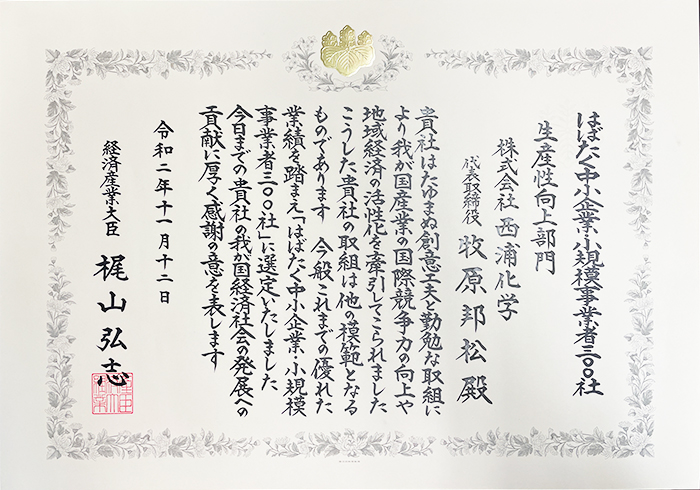 はばたく中小企業・小規模事業者三〇〇社
生産性向上部門
株式会社 西浦化学
代表取締役 牧原邦松 殿
貴社はたゆまぬ創意工夫と勤勉な取組に
より我が国産業の国際競争力の向上や
地域経済の活性化を牽引してこられました
こうした貴社の取組は他の模範となる
ものであります 今般これまでの優れた
業績を踏まえ「はばたく中小企業・小規模
事業者三〇〇社」に選定いたしました
今日までの貴社の我が国経済社会の発展への
貢献に厚く感謝の意を表します
令和二年十一月十二日
経済産業大臣 梶山弘志